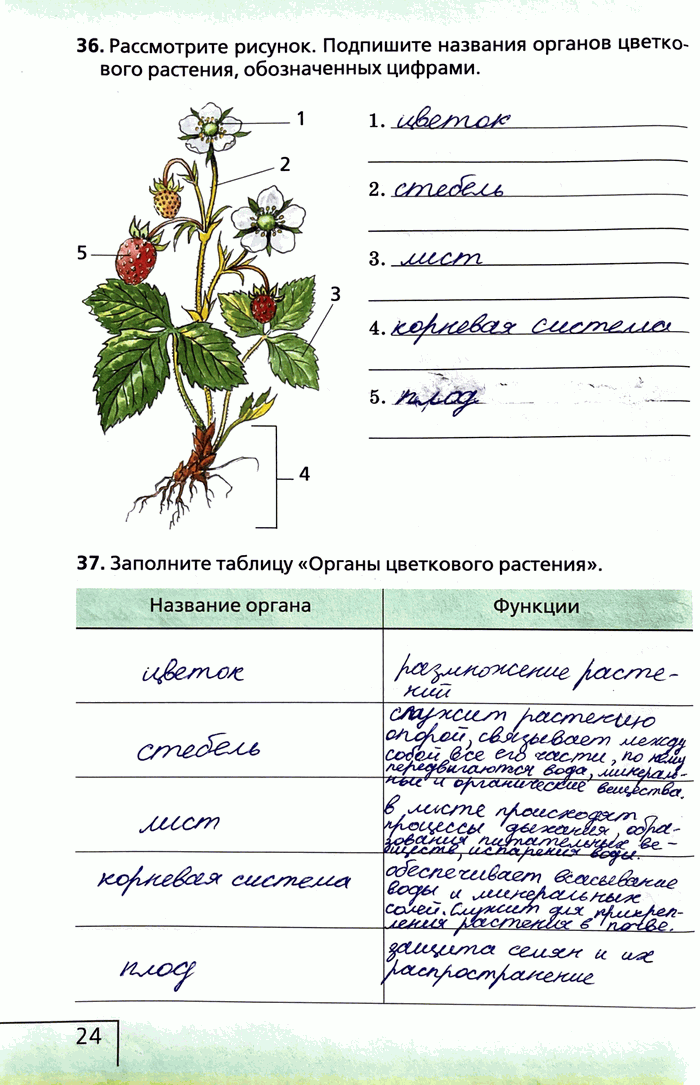 36. Рассмотрите рисунок. Подпишите названия органов цветко-
вого растения, обозначенных цифрами.
1
2
5
3
4
1. цветок
2. стебель
3. лист
4. корневая система
5. плод
37. Заполните таблицу «Органы цветкового растения».
Название органа
Функции
цветок
размножение расте-
ний
стебель
служит растению
опорой, связывает между
собой все его части, по нему
передвигаются вода, минераль-
ные и органические вещества.
лист
в листе происходят
процессы дыхания, обра-
зования питательных ве-
ществ, испарения воды.
корневая система
обеспечивает всасывание
воды и минеральных
солей. Служит для прикреп-
ления растения в почве.
плод
защита семян и их
распространение
24